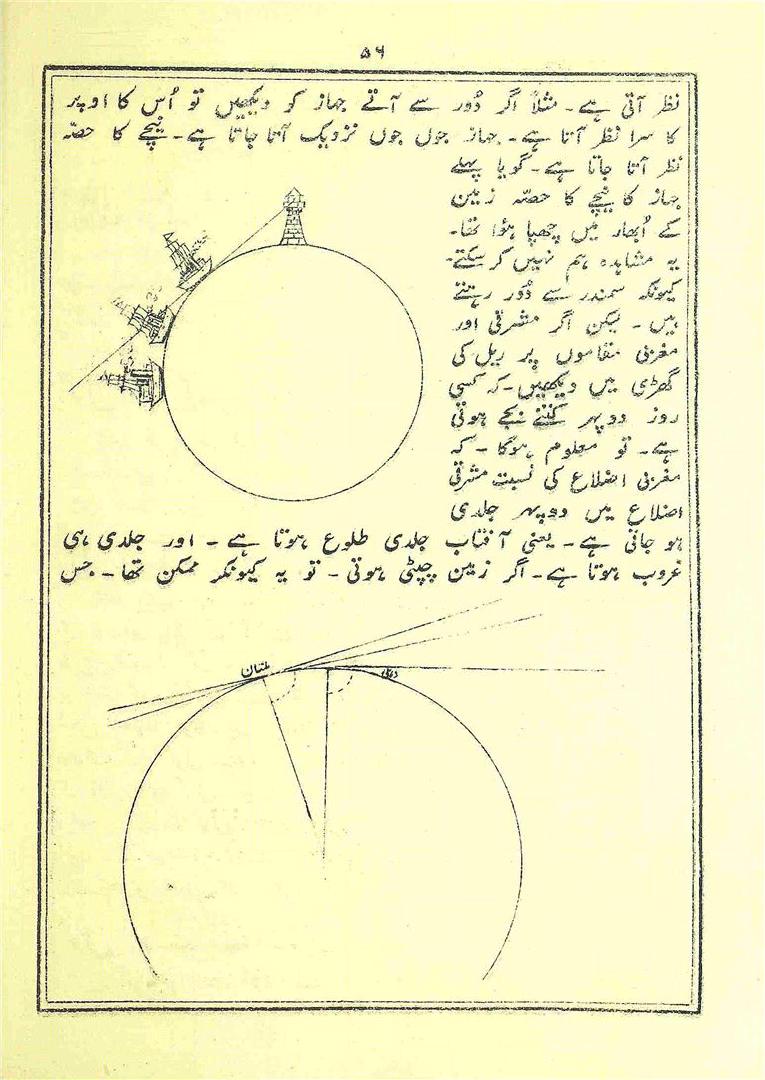 ۵۶
نظر آتی ہے۔ مثلاً اگر دُور سے آتے جہاز کو دیکھیں تو اُس کا اوپر
کا سرا نظر آتا ہے۔ جہاز جوں جوں نزدیک آتا جاتا ہے۔ نیچے کا حصّہ
نظر آتا جاتا ہے۔ گویا پہلے
جہاز کا نیچے کا حصّہ زمین
کے اُبھار میں چھپا ہؤا تھا۔
یہ مشاہدہ ہم نہیں کر سکتے۔
کیونکہ سمندر سے دُور رہتے
ہیں۔ لیکن اگر مشرقی اور
مغربی مقاموں پر ریل کی
گھڑی میں دیکھیں۔ کہ کسی
روز دوپہر کتنے بجے ہوتی
ہے۔ تو معلوم ہوگا۔ کہ
مغربی اضلاع کی نسبت مشرقی
اضلاع میں دوپہر جلدی
ہو جاتی ہے۔ یعنی آفتاب جلدی طلوع ہوتا ہے۔ اور جلدی ہی
غروب ہوتا ہے۔ اگر زمین چپٹی ہوتی۔ تو یہ کیونکر ممکن تھا۔ جس
دہلی
ملتان